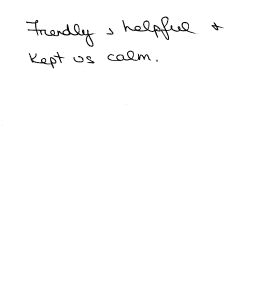 Friendly, helpful +
kept us calm.